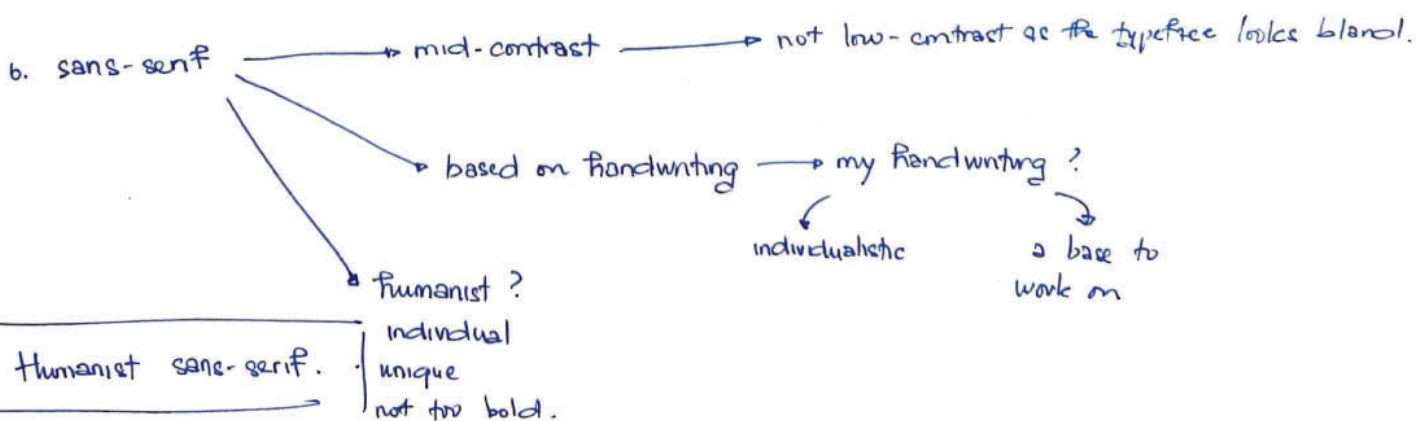 6. sans-serif → mid-contrast → not low-contrast as the typeface looks bland.
→ based on handwriting → my handwriting ?
individualistic
a base to
work on
→ humanist ?
individual
Humanist sans-serif.
unique
not too bold.